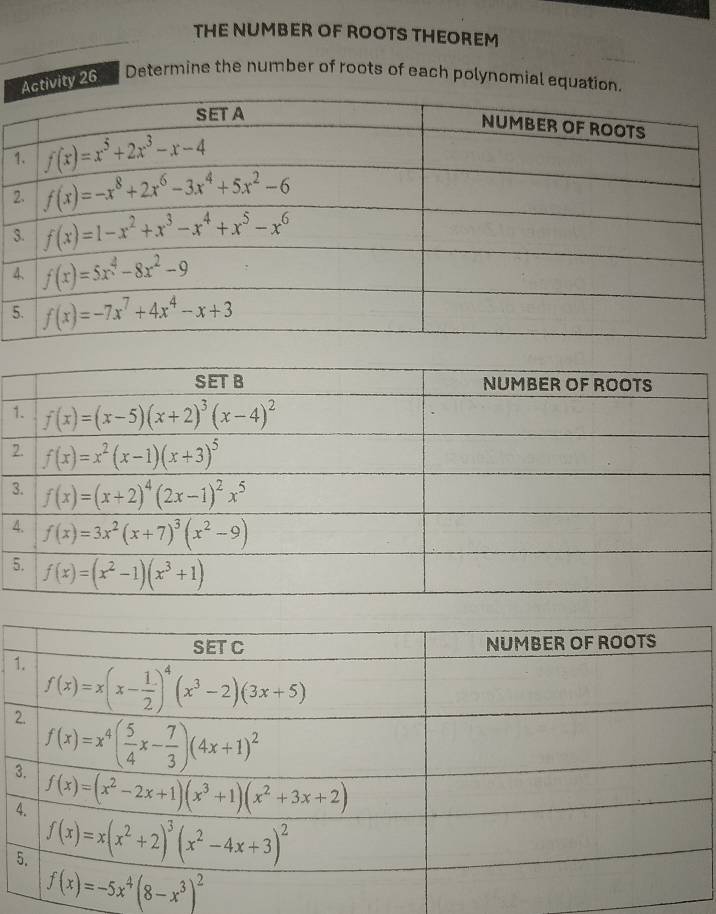 THE NUMBER OF ROOTS THEOREM
Activity 26 Determine the number of roots of each polynomial equation.
SET A NUMBER OF ROOTS
1. f(x)=x⁵+2x³−x−4
2. f(x)=−x⁸+2x⁶−3x⁴+5x²−6
3. f(x)=1−x²+x³−x⁴+x⁵−x⁶
4. f(x)=5x⁴−8x²−9
5. f(x)=−7x⁷+4x⁴−x+3
SET B NUMBER OF ROOTS
1. f(x)=(x−5)(x+2)³(x−4)²
2. f(x)=x²(x−1)(x+3)⁵
3. f(x)=(x+2)⁴(2x−1)²x⁵
4. f(x)=3x²(x+7)³(x²−9)
5. f(x)=(x²−1)(x³+1)
SET C NUMBER OF ROOTS
1. f(x)=x(x−1/2)⁴(x³−2)(3x+5)
2. f(x)=x⁴(5/4x−7/3)(4x+1)²
3. f(x)=(x²−2x+1)(x³+1)(x²+3x+2)
4. f(x)=x(x²+2)³(x²−4x+3)²
5. f(x)=−5x⁴(8−x³)²